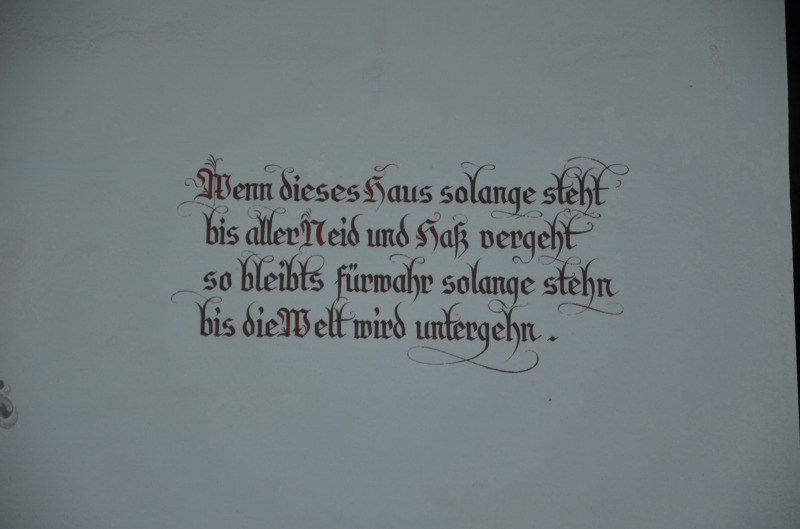 Wenn dieses Haus solange steht
bis aller Neid und Haß vergeht
so bleibts fürwahr solange stehn
bis die Welt wird untergehn.